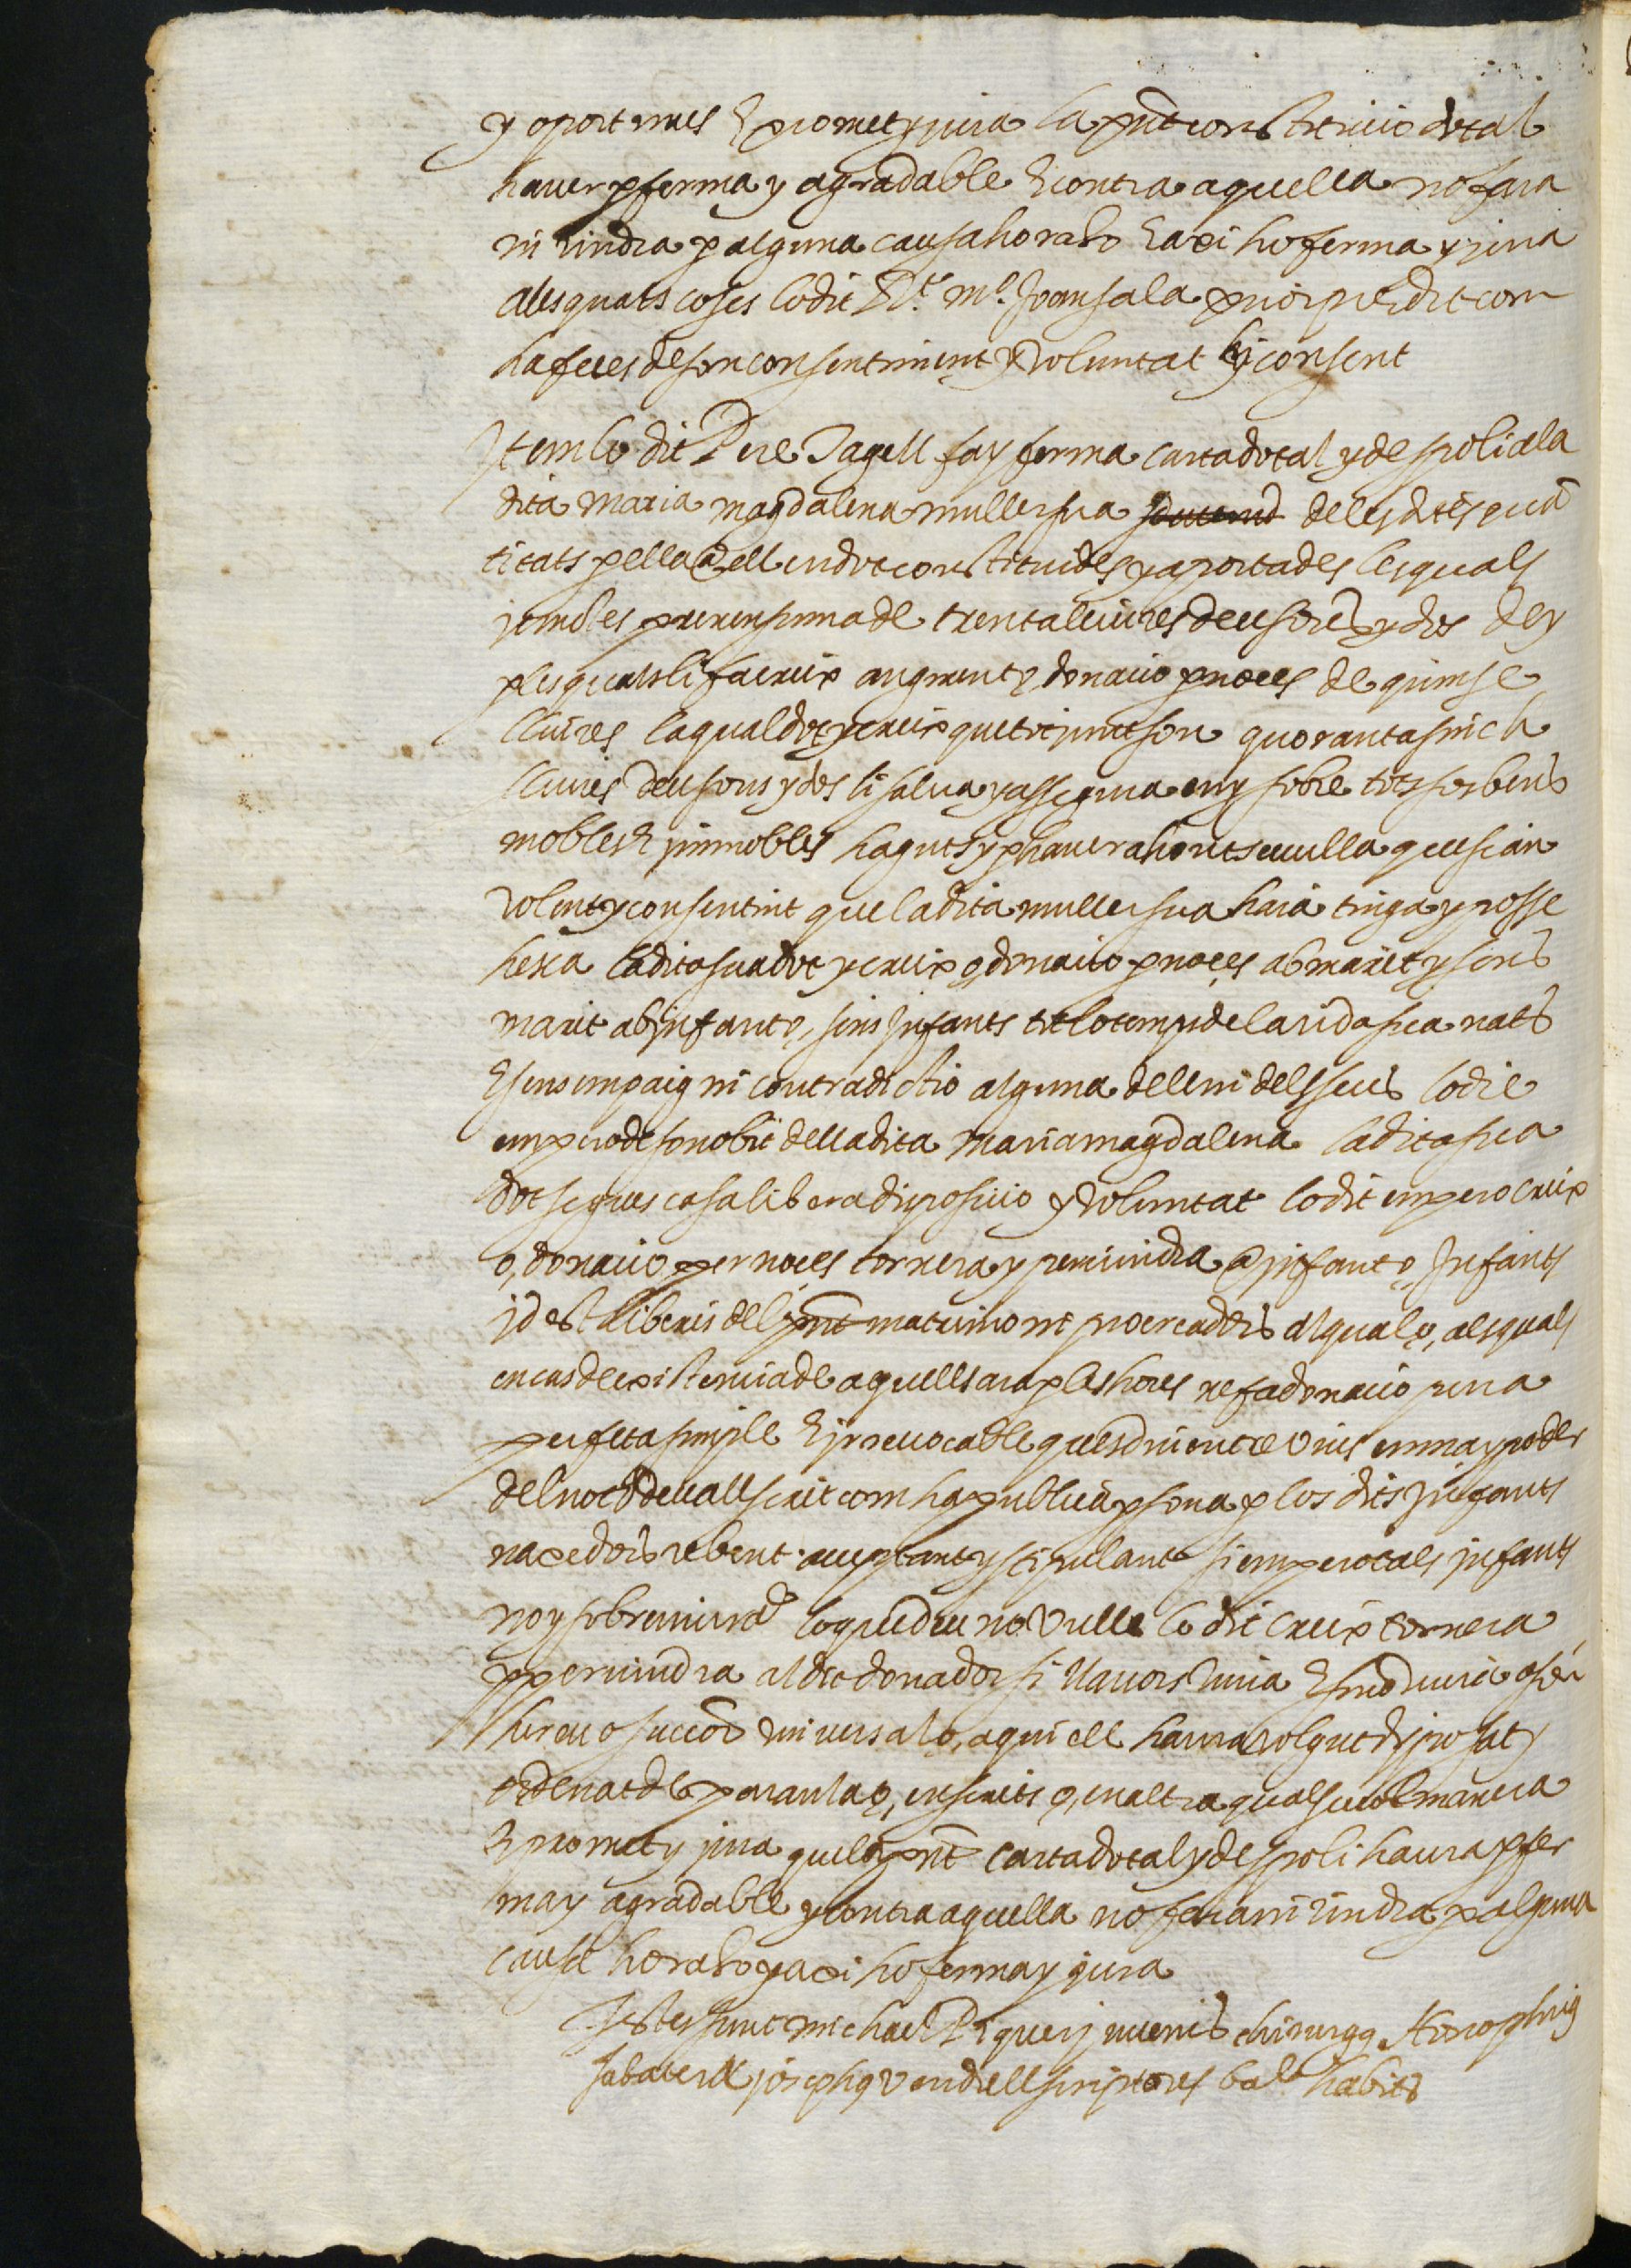 y oportunes E promet y jura la pñt constitucio dotal
haver p ferma y agradable E contra aquella no fara
ni vindra p alguna causa ho raho E axi ho ferma y jura
A les quals coses lo dit Rt. mo. Joan sala prior predit com
ha fetes de son consentiment y voluntat hi consent
Item lo dit Pere Sagell fa y ferma carta dotal y de spoli a la
dita Maria magdalena muller sua de les dites quã
titats p ella a ell en dot constituides y aportades les quals
juntes prenen suma de trenta lliures deu sous y dos dez
p les quals li fa creix augment o, donacio p noces de quinse
lliures la qual dot y creix que tot junt son quoranta sinch
lliures deu sous y dos li salva y assegura en y sobre tots sos bens
mobles E immobles haguts y p haver ahont sevulla que sian
Volent y consentint que la dita muller sua haia tinga y posse
hesca la dita sua dot y creix o, donacio p noces ab marit y sens
marit ab infant o, sens Infants tot lo temps de la vida sua nats
E sens empaig ni contradictio alguna de ell ni dels seus Lo die
empero de son obit de lla dita Maria magdalena la dita sua
dot segues casa libera disposicio y voluntat lo dit empero creix
o, donacio per noces tornera y pervindra a infant o, Infants
id est liberis del pñt matrimoni procreadors Al qual o, als quals
en cas de existencia de aquells ara p les hores ne fa donacio pura
perfeta simple E irrevocable ques diu entre vius en ma y poder
del not. devall scrit com ha publica psona p los dits Infants
naxedors rebent acceptant y stipulant si empero tals infants
noy sobreviura lo que deu no vulle lo dit creix tornera
y pervindra al dit donador si llavors viura E si no viura o sõ
hereu o succor universal o, a qui ell haura volgut disposat y
ordenat de paraula o, en scrits o, en altra qualsevol manera
E promet y jura que la pñt carta dotal y de spoli haura p fer
ma y agradable y contra aquella no fara ni vindra p alguna
causa ho raho y axi ho ferma y jura
Testes sunt michael Piquer juvenis chirurgg
sabater & josephg vendrell scriptores habits